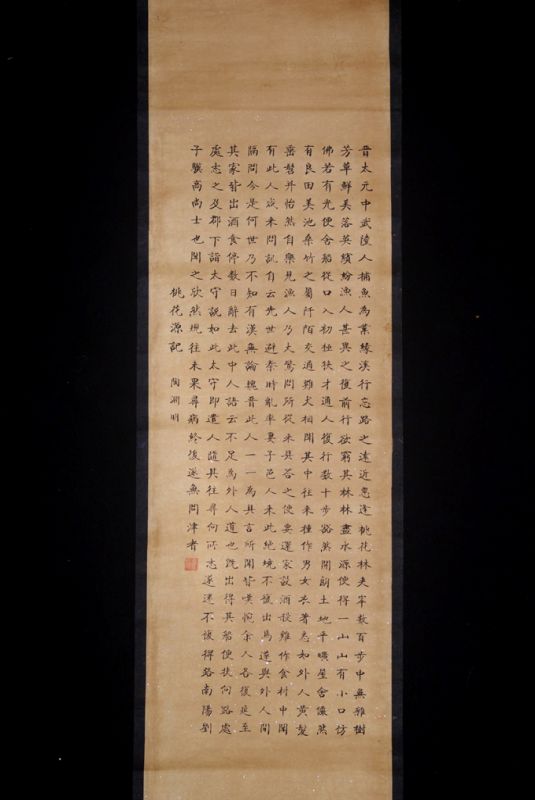 晉太元中武陵人捕魚為業緣溪行忘路之遠近忽逢桃花林夹岸数百步中無雜樹
芳草鮮美落英繽紛漁人甚異之復前行欲窮其林林盡水源便得一山山有小口仿
佛若有光便舍船從口入初極狭才通人復行数十步豁然開朗土地平曠屋舍儼然
有良田美池桑竹之屬阡陌交通雞犬相聞其中往来種作男女衣著悉如外人黄髮
垂髫并怡然自樂見漁人乃大驚問所從来具答之便要還家設酒殺雞作食村中聞
有此人咸来問訊自云先世避秦時亂率妻子邑人来此絶境不復出焉遂與外人間
隔問今是何世乃不知有漢無論魏晉此人一一為具言所聞皆嘆惋余人各復延至
其家皆出酒食停数日辭去此中人語云不足為外人道也既出得其船便扶向路處
處志之及郡下詣太守說如此太守即遣人隨其往尋向所志遂迷不復得路南陽劉
子驥高尚士也聞之欣然規往未果尋病終後遂無問津者
桃花源記 陶渊明